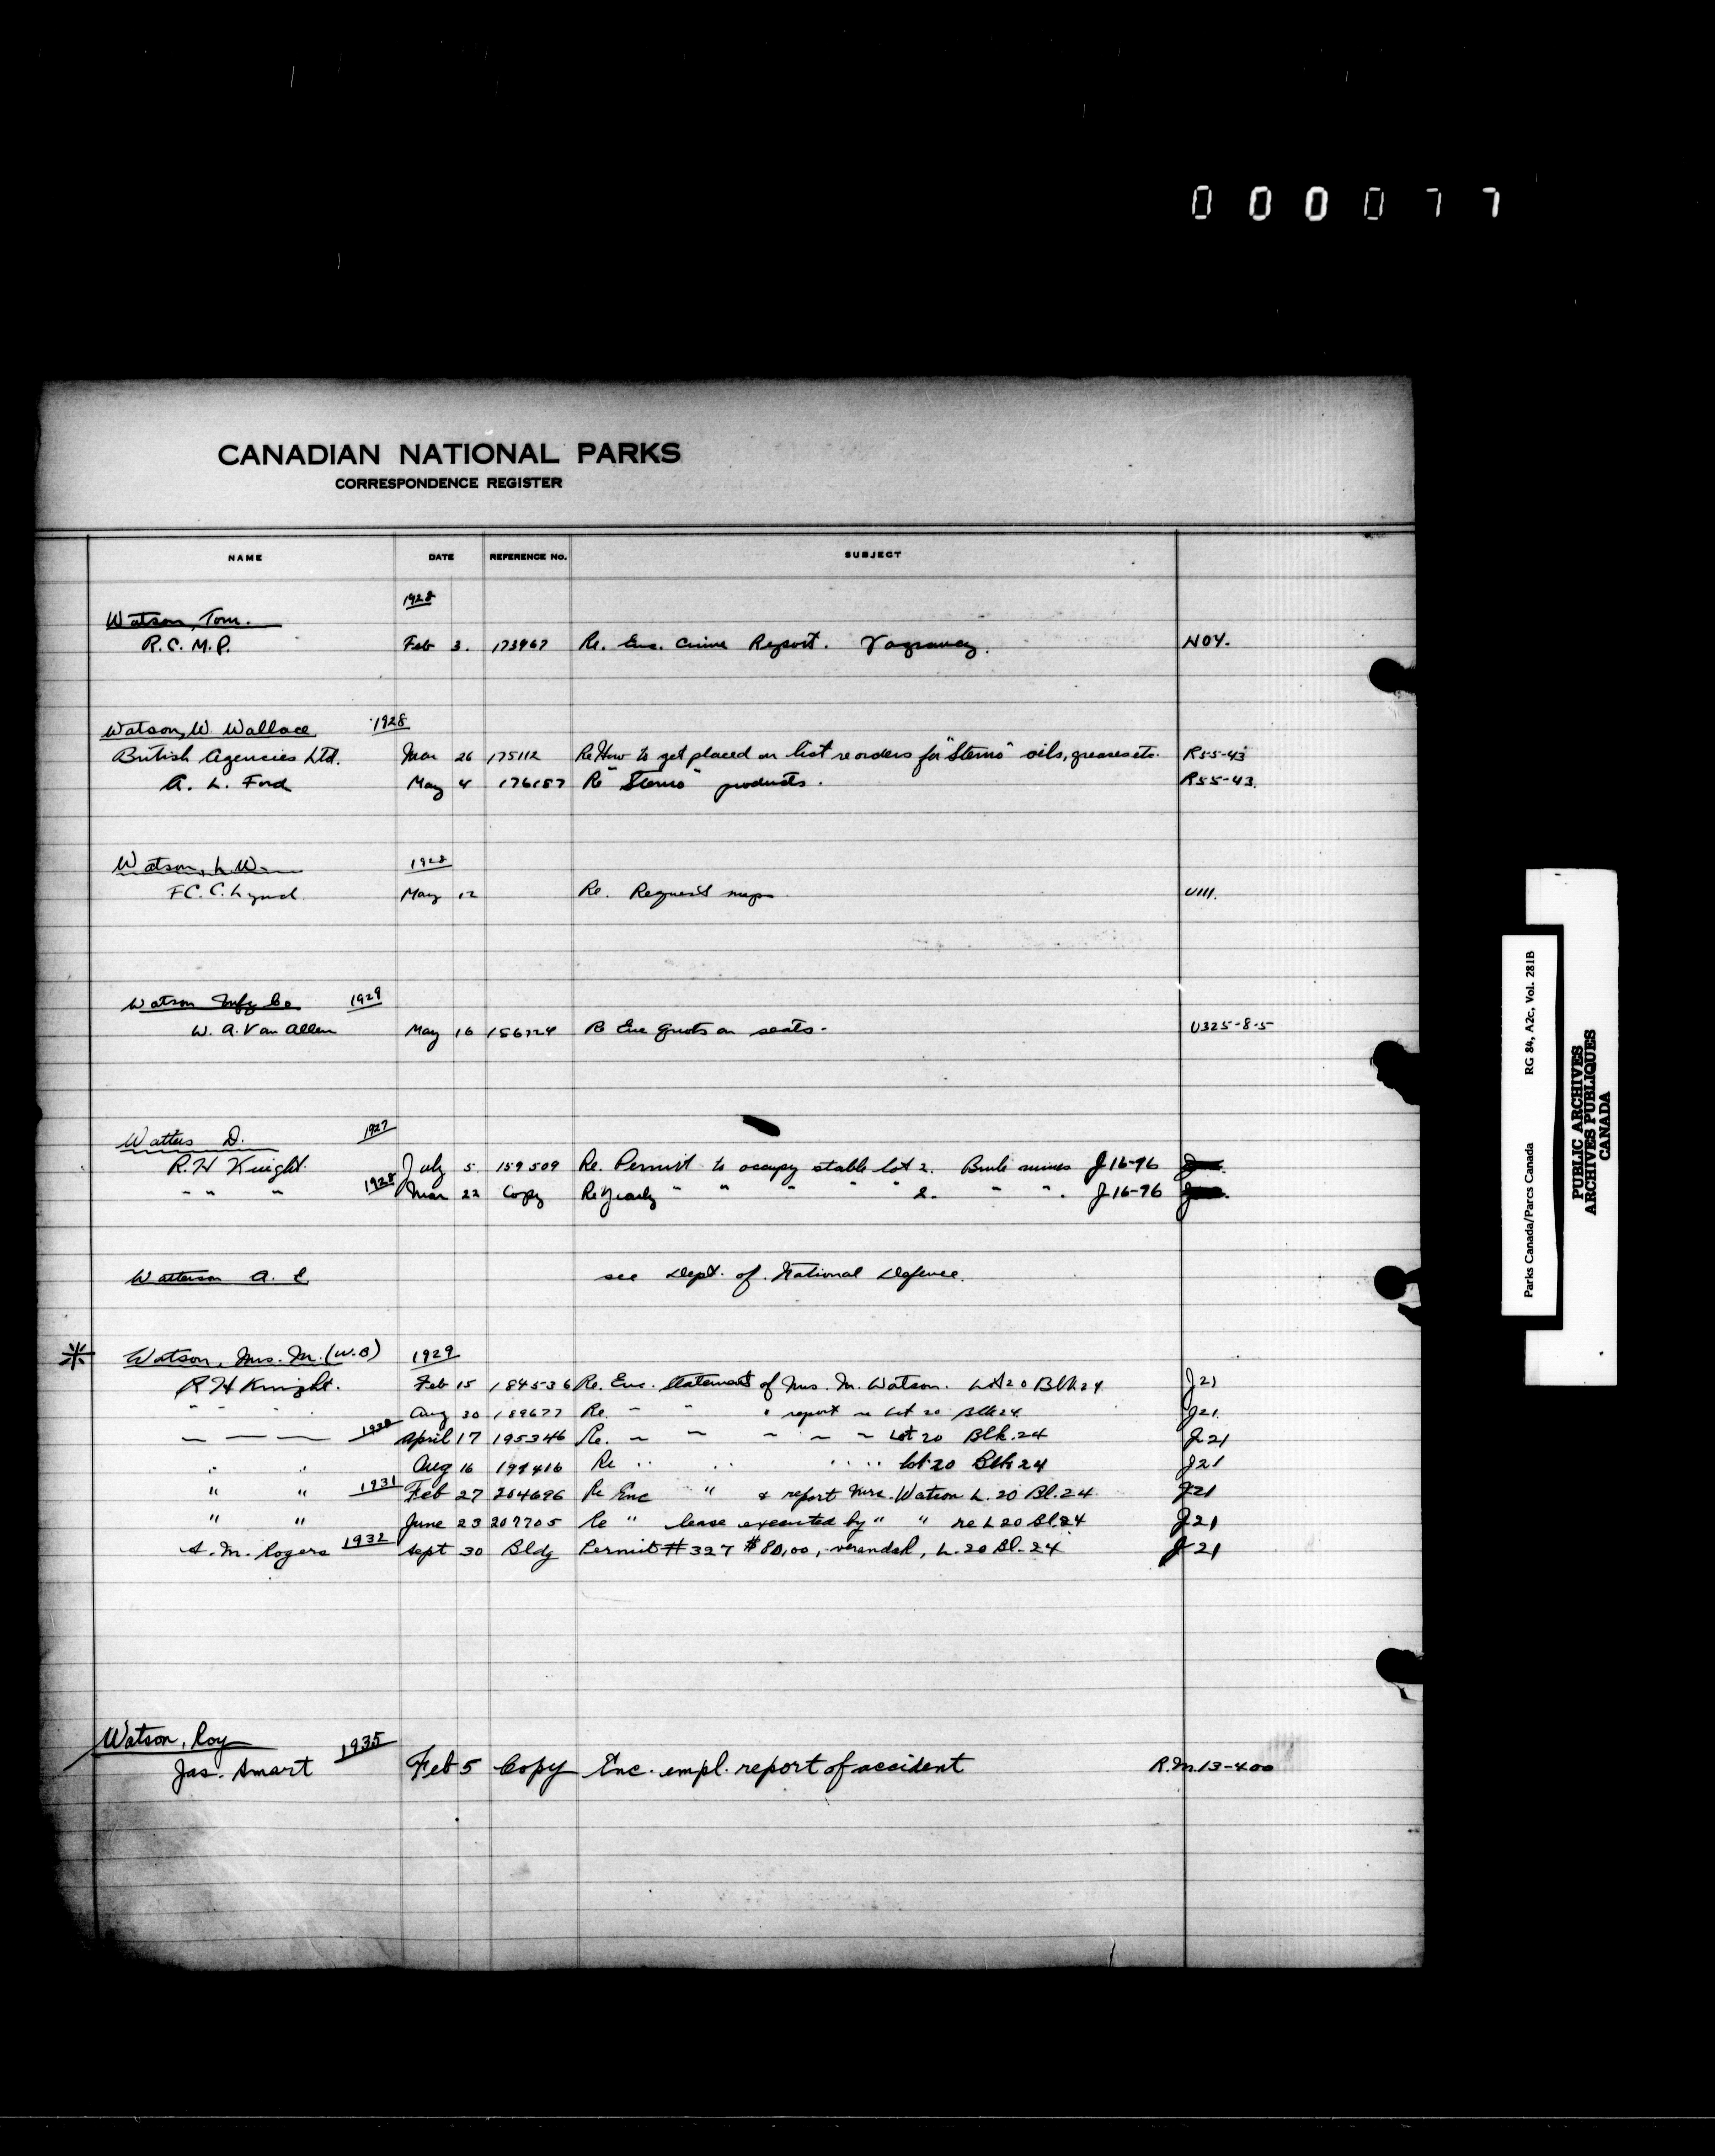 000077
CANADIAN NATIONAL PARKS
CORRESPONDENCE REGISTER
NAME DATE REFERENCE No. SUBJECT
1928
Watson, Tom.
R.C.M.P. Feb 3. 173967 Re. Enc. Crime Report. Vagrancy. N04.
Watson, W. Wallace 1928
British Agencies Ltd. Mar 26 175112 Re How to get placed on list re orders for "Sterno" oils, greases etc. R55-43
A. L. Ford May 4 176157 Re "Sterno" products. R55-43.
Watson, L. W. 1928
F.C.C. Lynch May 12 Re. Request maps U111.
Watson Mfg Co 1929
W. A. Van Allen May 16 186724 Re Enc quots on seats. U325-8-5
Watters D. 1927
R.H Knight. July 5. 159509 Re. Permit to occupy stable lot 2. Brule mines J16-96
" " " 1928 Mar 22 Copy Re Yearly " " " " " 2. " ". J16-96
Watterson A. E. see Dept. of National Defence.
Watson, Mrs. M. (W.B) 1929
R H Knight. Feb 15 184536 Re. Enc. Statement of Mrs. M. Watson. Lot 20 Blk 24 J21
" " " Aug 30 189677 Re. " " " report re Lot 20 Blk 24 J21.
— — — 1930 April 17 195346 Re. " " " " " Lot 20 Blk. 24 J21
" " Aug 16 199416 Re " " " " Lot 20 Blk 24 J21
" " 1931 Feb 27 204696 Re Enc " & report Mrs. Watson L. 20 Bl. 24 J21
" " June 23 207705 Re " lease executed by " " re L 20 Bl 24 J21
S. M. Rogers 1932 Sept 30 Bldg Permit # 327 $80.00, verandah, L. 20 Bl. 24 J21
Watson, Roy 1935
Jas. Smart Feb 5 Copy Enc. empl. report of accident R.M.13-400
Parks Canada/Parcs Canada RG 84, A2c, Vol. 281B
PUBLIC ARCHIVES
ARCHIVES PUBLIQUES
CANADA